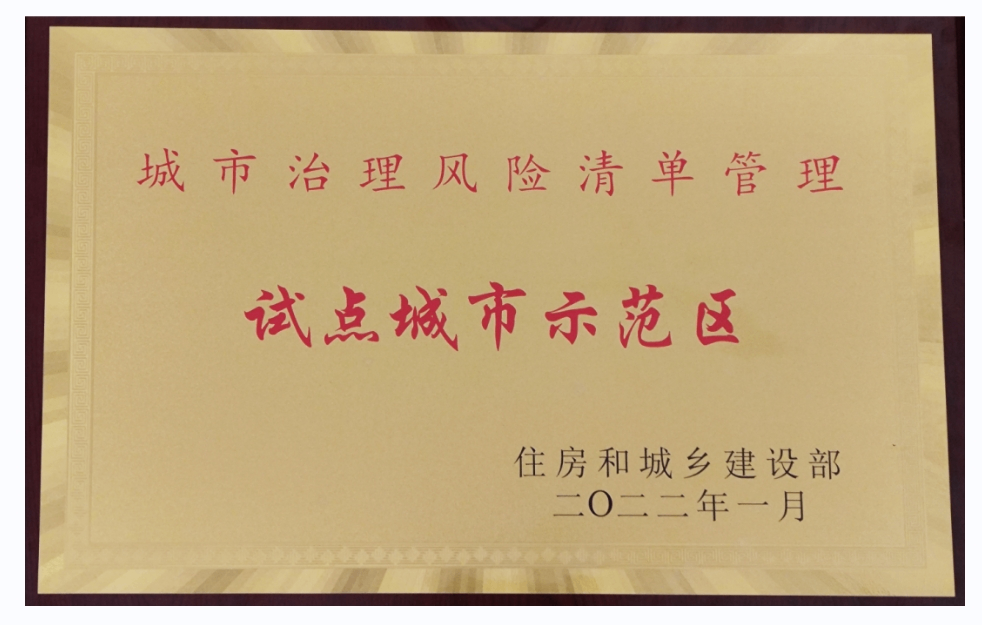 城市治理风险清单管理
试点城市示范区
住房和城乡建设部
二〇二二年一月